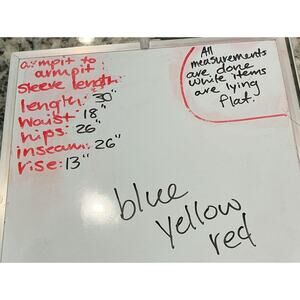 armpit to
armpit:
sleeve length:
length: 30"
waist: 18"
hips: 26"
inseam: 26"
rise: 13"
All
measurements
are done
while items
are lying
flat.
blue
yellow
red